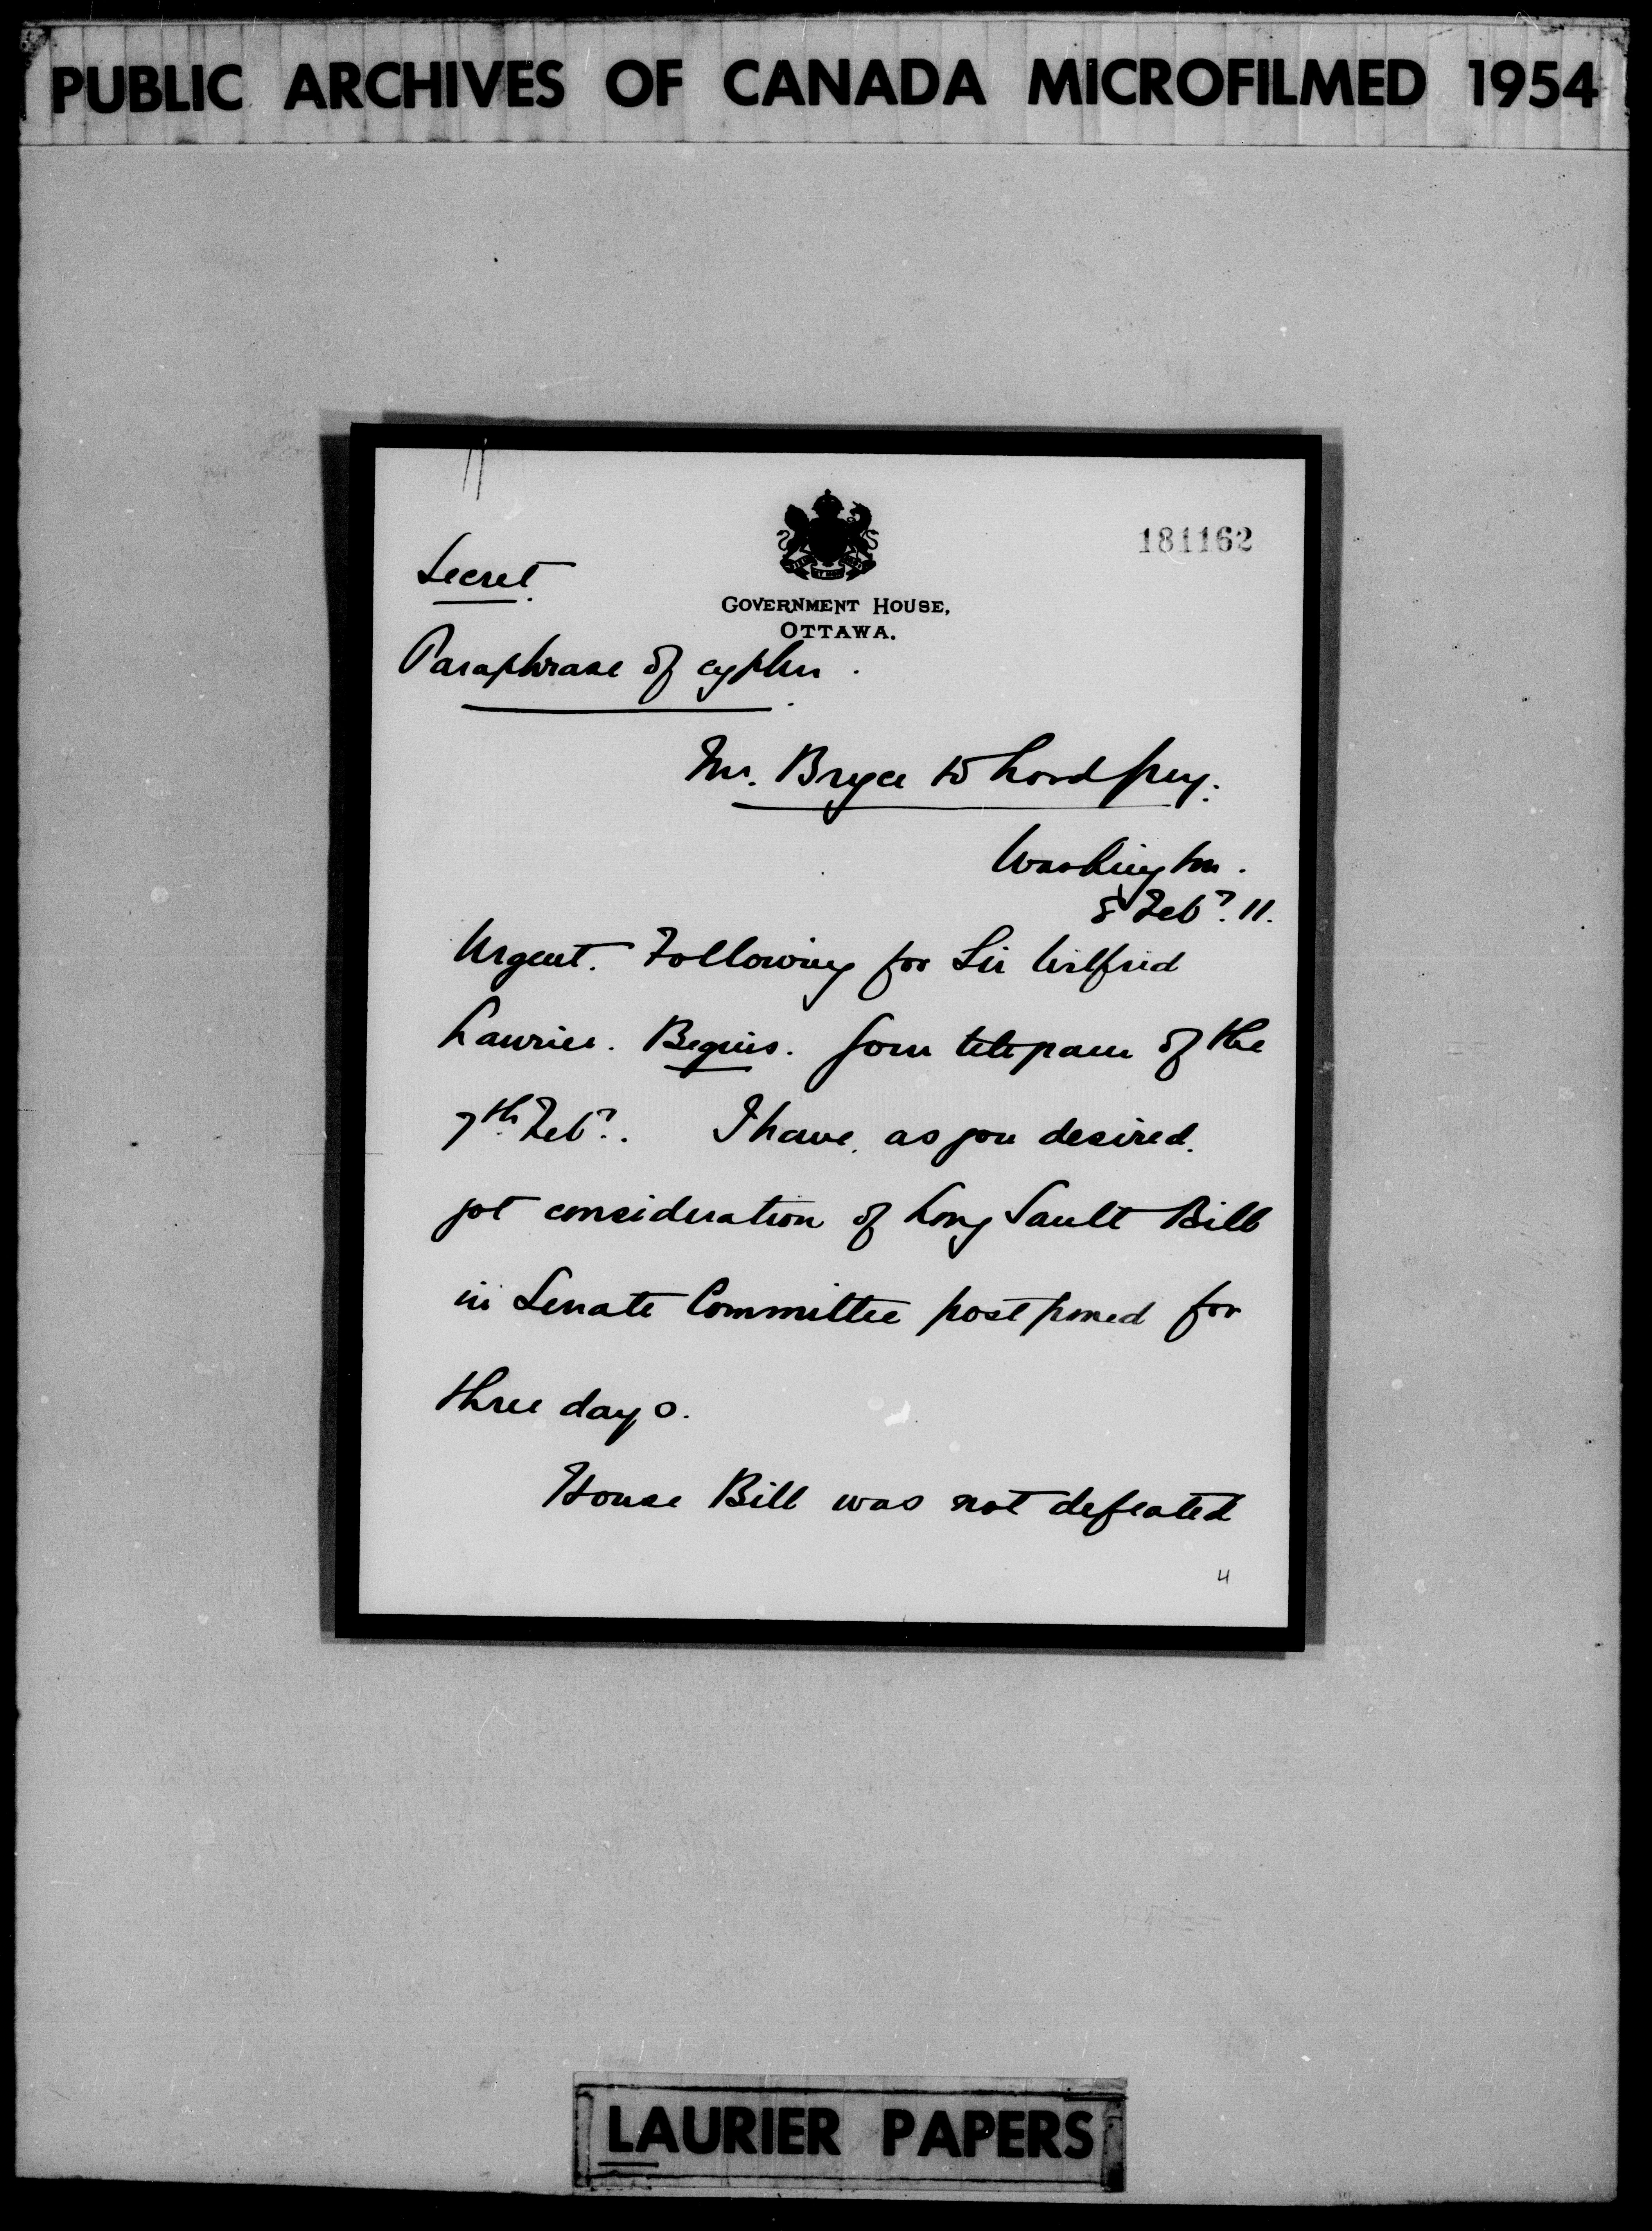 PUBLIC ARCHIVES OF CANADA MICROFILMED 1954
181162
Secret.
GOVERNMENT HOUSE,
OTTAWA.
Paraphrase of cypher.
Mr. Bryce to Lord Grey.
Washington.
8 Feby. 11.
Urgent. Following for Sir Wilfrid
Laurier. Begins. Your telegram of the
7th Feby. I have, as you desired,
got consideration of Long Sault Bill
in Senate Committee postponed for
three days.
House Bill was not defeated
4
LAURIER PAPERS